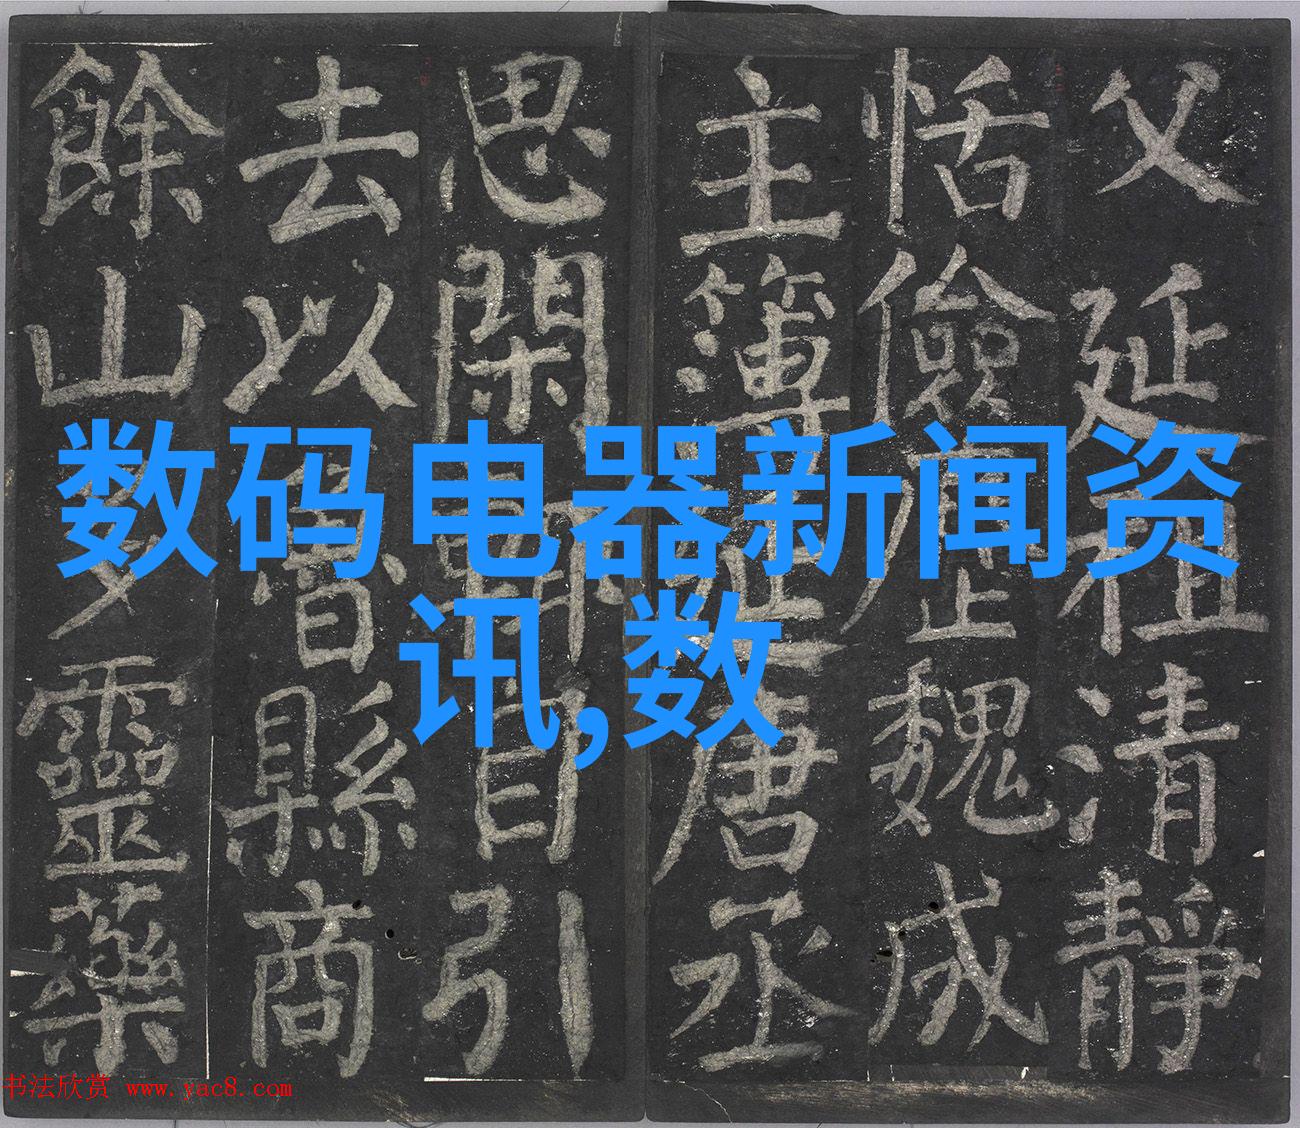 父延祖清靜
恬儉魏成
主簿唐丞
思閑自引
去以魯縣商
餘山多靈藥
数码电器新闻资
讯,数
书法欣赏 www.yac8.com